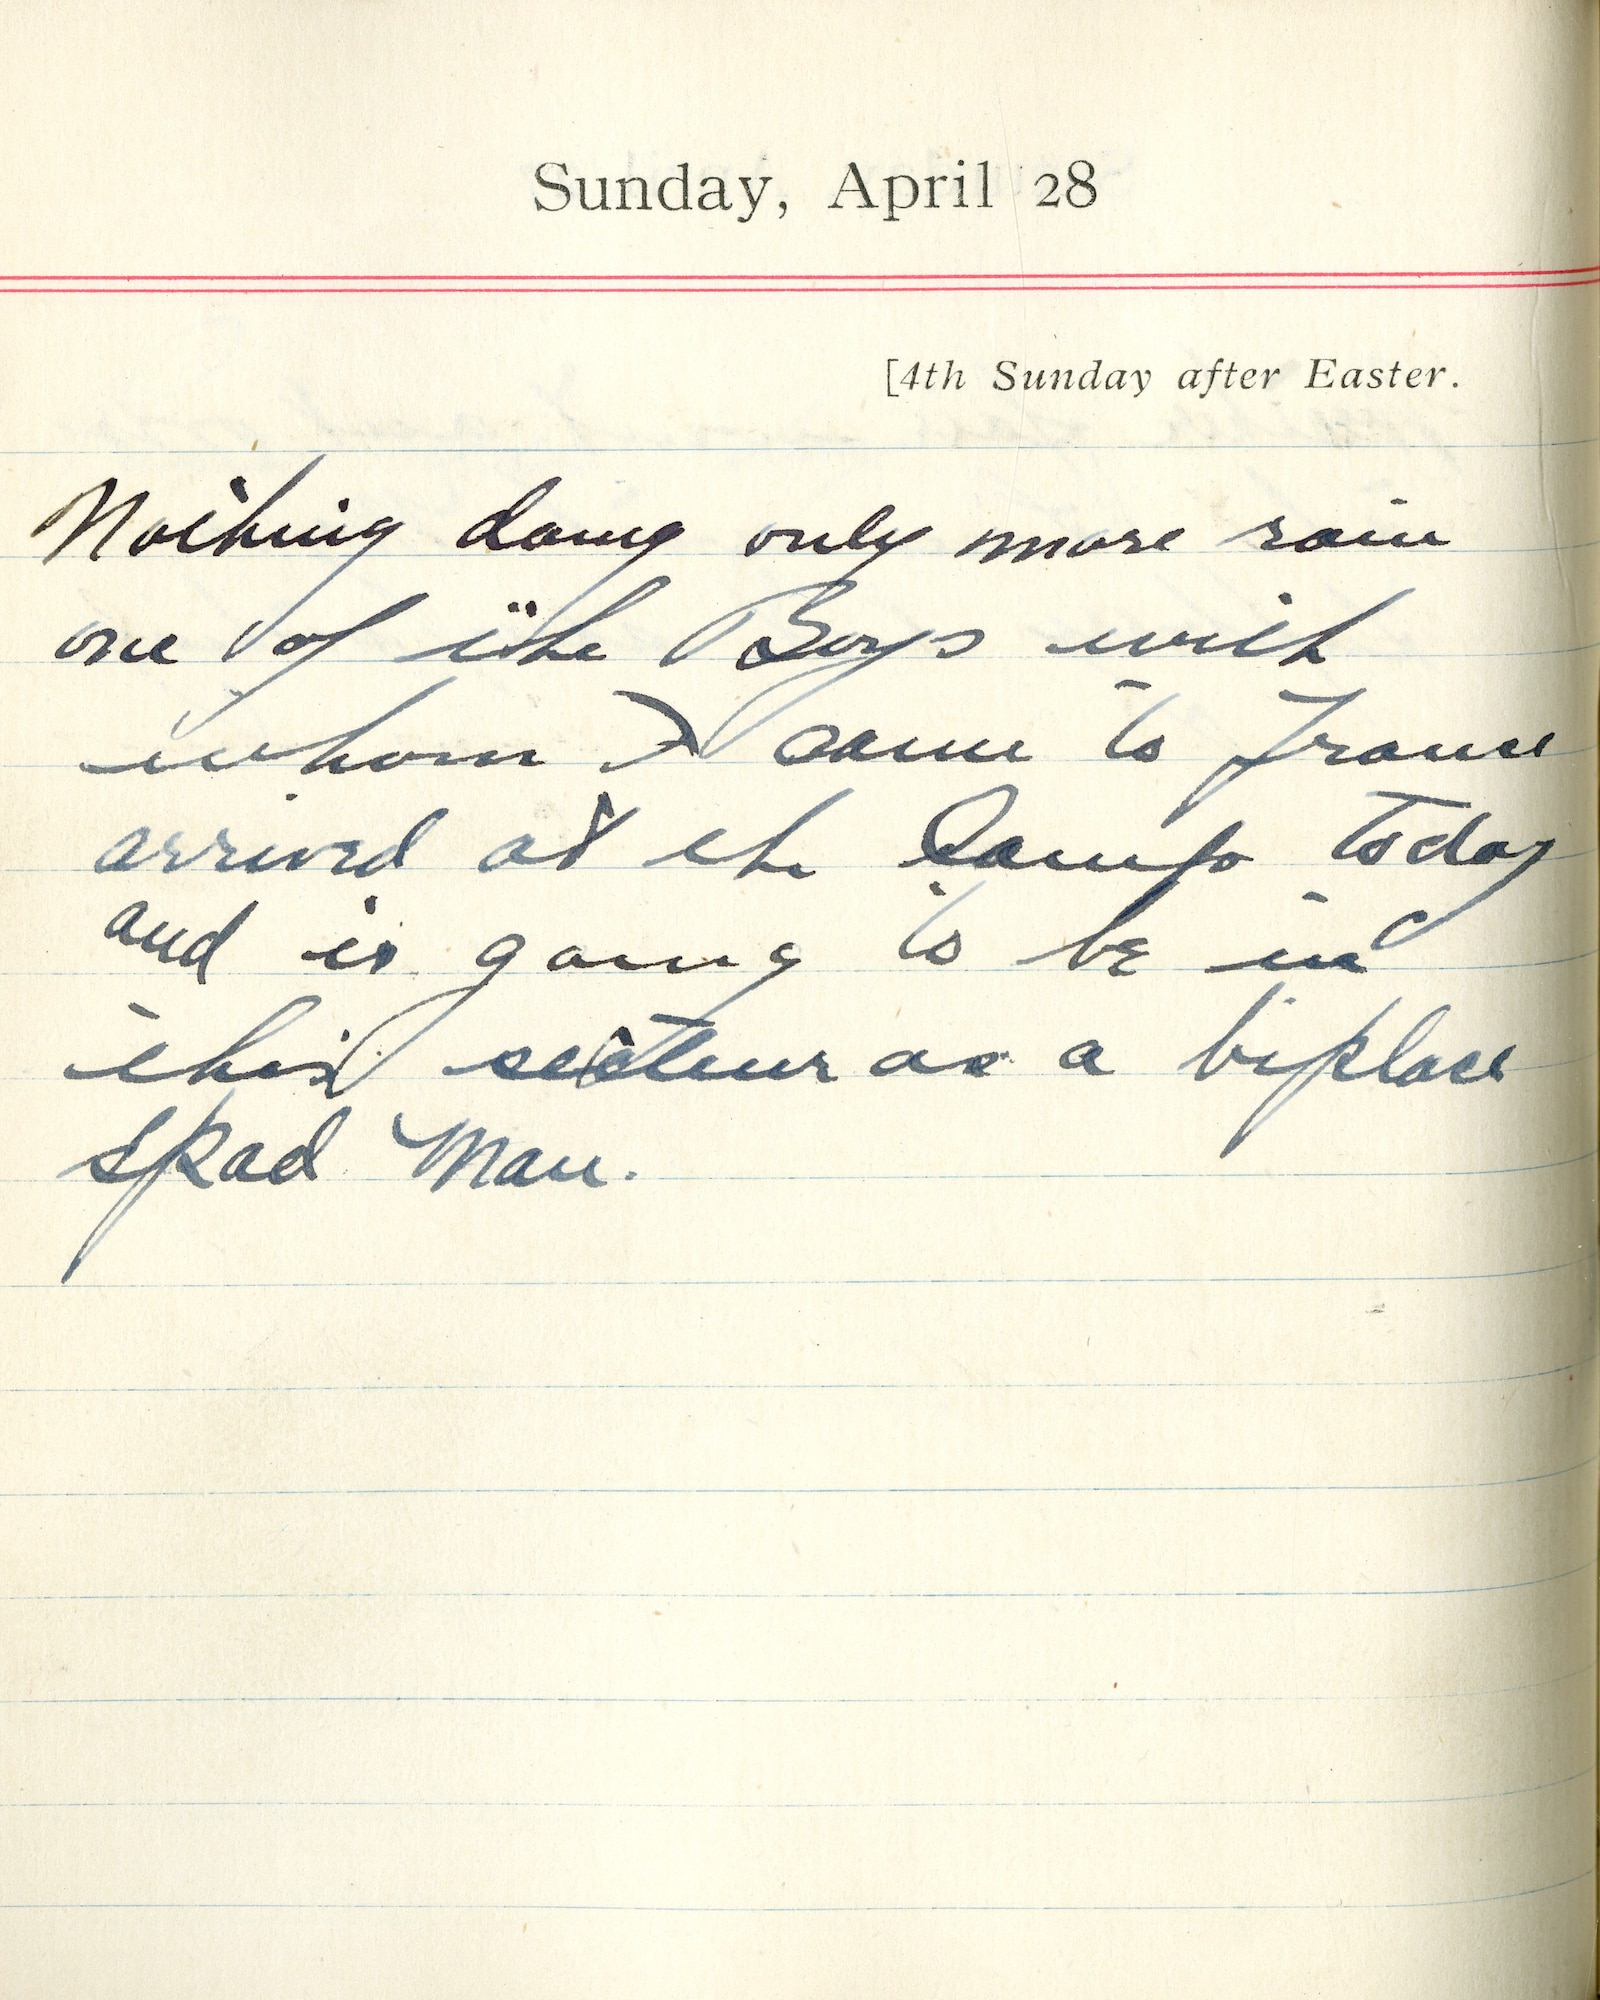 Sunday, April 28
[4th Sunday after Easter.
Nothing doing only more rain
one of the Boys with
whom I came to France
arrived at the Camp today
and is going to be in
this secteur as a biplace
spad Man.